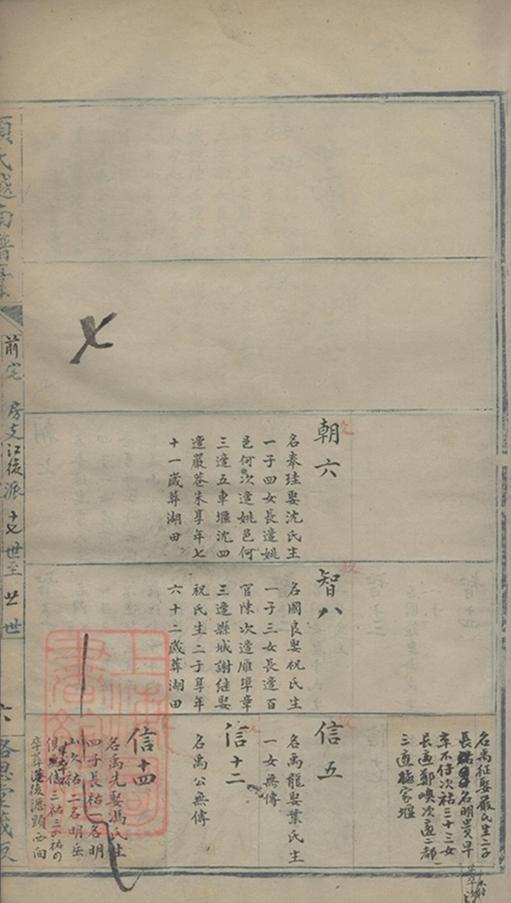 朝六
名奉珪娶沈氏生
一子四女長適姚
邑何次適姚邑何
三適五車堰沈四
適嚴巷朱享年七
十一歲葬湖田
智八
名國良娶祝氏生
一子三女長適百
官陳次適雁埠章
三適縣城謝繼娶
祝氏生二子享年
六十二歲葬湖田
名禹征娶嚴氏生二子
長祐 名明貴早
卒不仔次祐三十三女
長適鄭 次適二都
三適 家堰
信五
名禹龍娶葉氏生
一女無傳
信十二
名禹公無傳
信十四
名禹先娶馮氏生
四子長祐一名明
山次祐二名明岳
三祐三 祐
卒葬 後 西向
氏越南譜
前宅 房支江後派 十七世至廿世
六